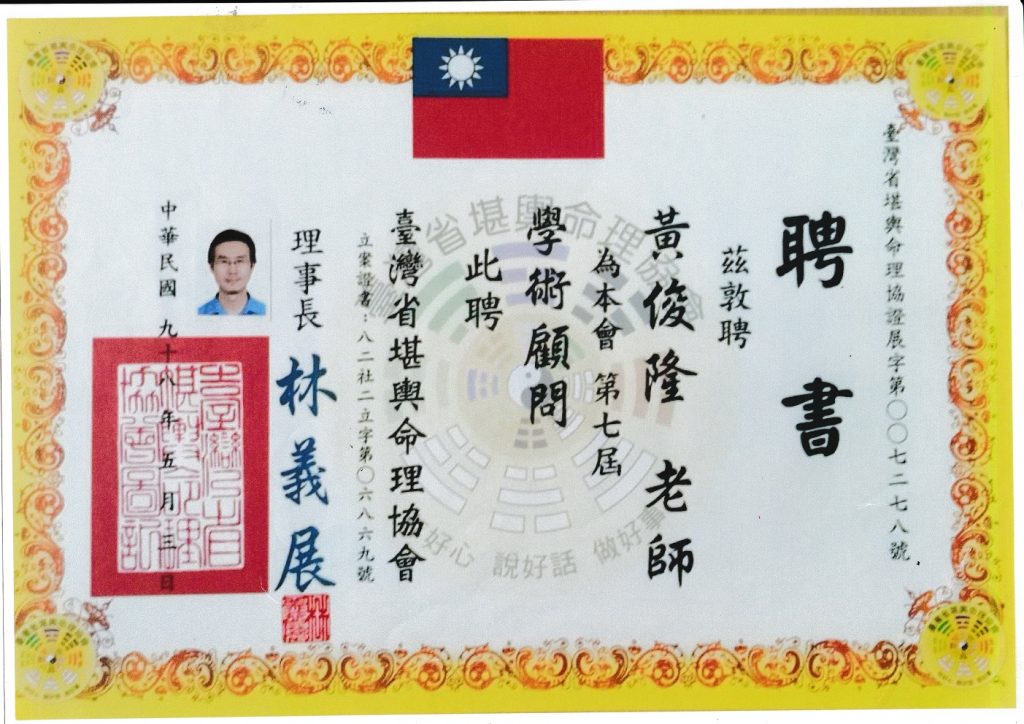 臺灣省堪輿命理協證展字第〇〇七二七八號
聘書
茲敦聘
黃俊隆 老師
為本會 第七屆
學術顧問
此聘
臺灣省堪輿命理協會
立案證書：八二社二立字第〇六八六九號
理事長 林義展
中華民國 九十八年五月三日
臺灣省堪輿命理協會
好心 說好話 做好事